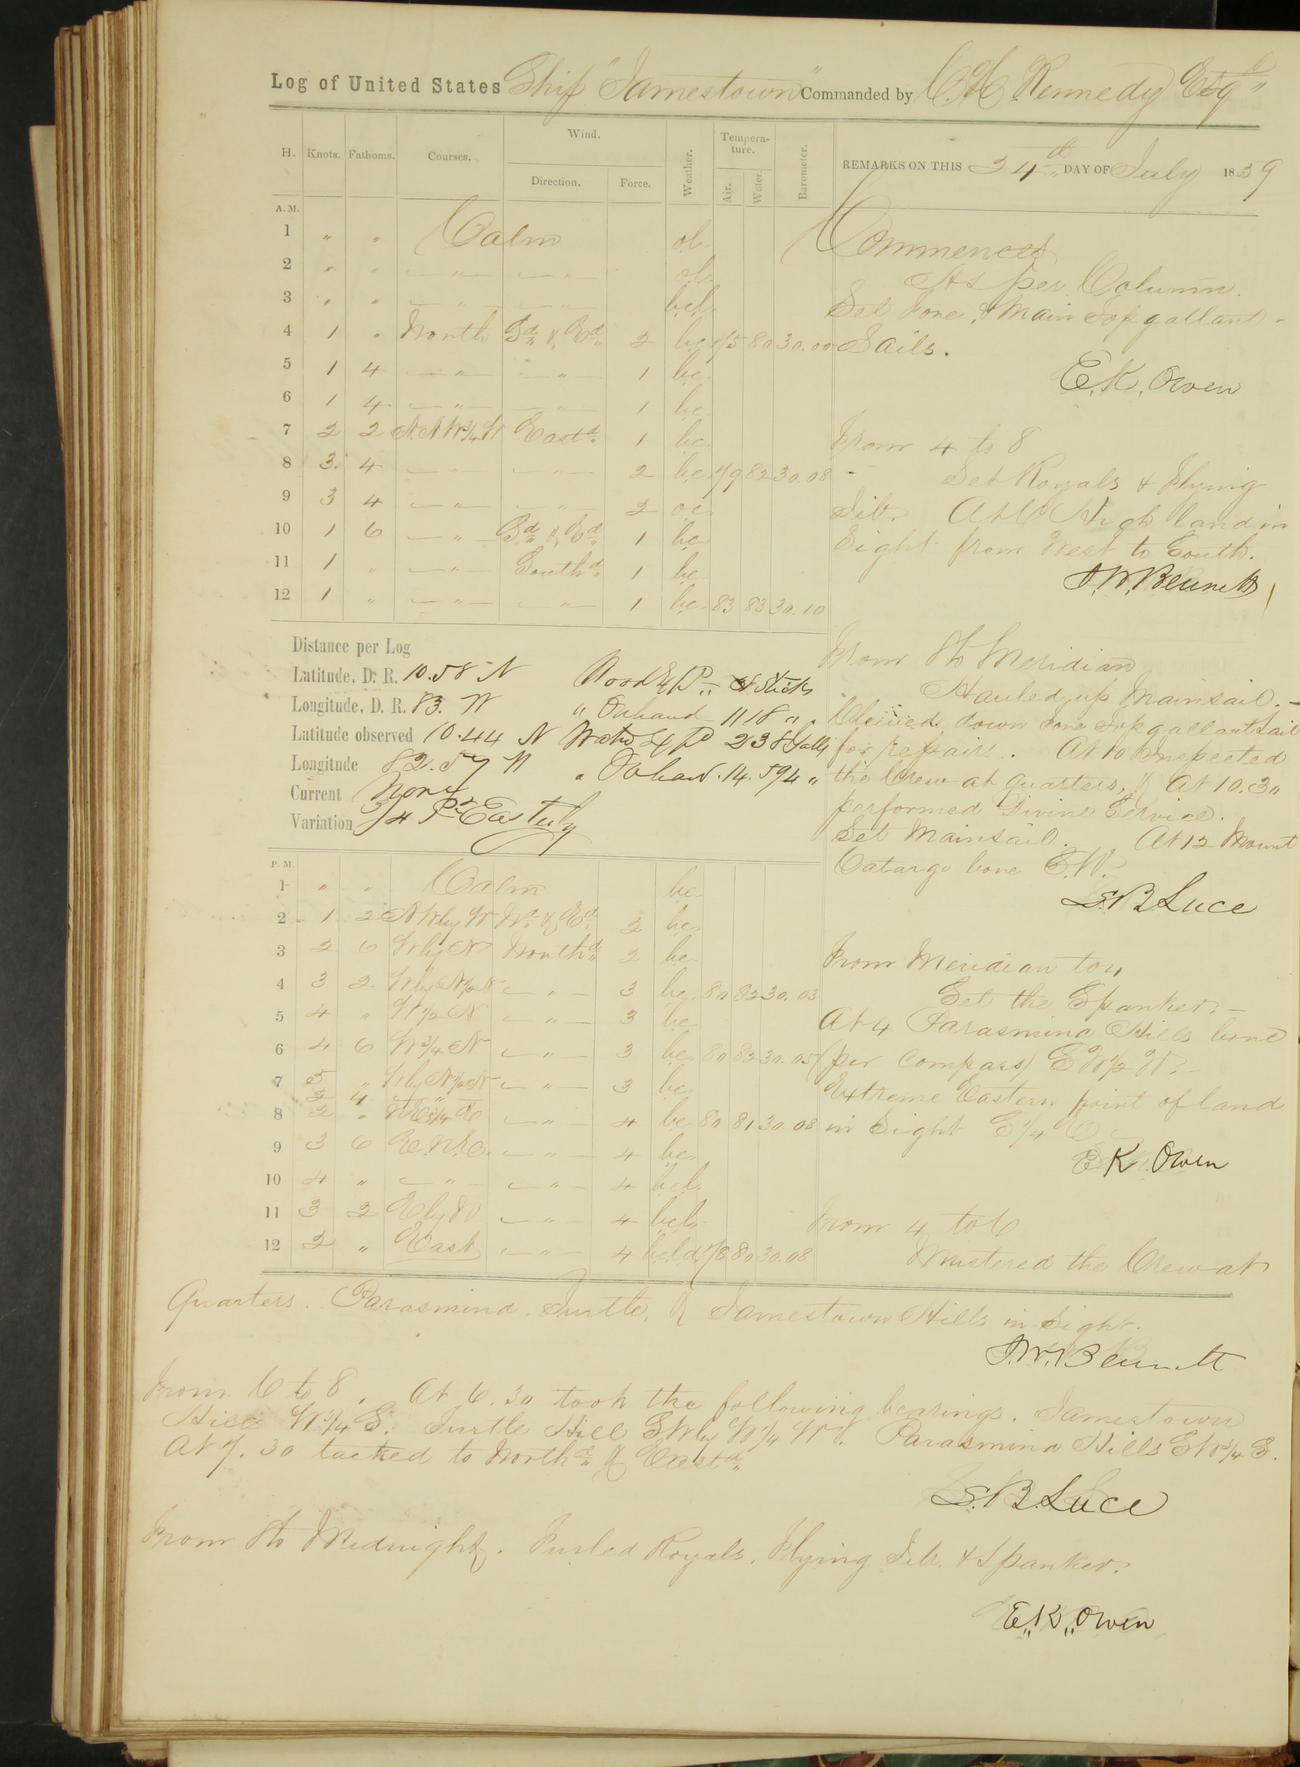 Log of United States Ship "Jamestown" Commanded by C.H. Kennedy Esqr
H. Knots. Fathoms. Courses. Wind. Direction. Force. Weather. Tempera-ture. Air. Water. Barometer. REMARKS ON THIS 24th DAY OF July 1859
A.M.
1 " " Calm oc.
2 " " " " oc.
3 " " " " bcl.
4 1 " North Sd & Ed 2 bc 75 80 30.00
5 1 4 " " 1 bc
6 1 4 " " 1 bc
7 2 2 N.N.W 3/4 W Eastd 1 bc
8 3 4 " " 2 bc 79 82 30.08
9 3 4 " " 2 oc
10 1 6 " Sd & Ed 1 bc
11 1 " " Southd 1 bc
12 1 " " " 1 bc 83 83 30.10
Commences
As per Column.
Set Fore & Main Topgallant-
Sails.
E.K. Owen
From 4 to 8
Set Royals & Flying
Jib. At 6 High land in
Sight from West to South.
J.W. Bennett
From 8 to Meridian
Hauled up Mainsail.
down Fore Topgallant Sail
for repairs. At 10 Inspected
the Crew at Quarters, & At 10.30
performed Divine Service.
Set Mainsail. At 12 Mount
Catargo bore S.W.
S.B. Luce
Distance per Log
Latitude, D. R. 10.58 N Wood Ex. Sticks
Longitude, D. R. 83. W " On hand 1118 "
Latitude observed 10.44 N Water Ex. 238 Galls
Longitude 82.57 W " On hand. 14.594 "
Current None
Variation 3/4 Pt Easterly
P.M.
1 " " Calm bc
2 1 2 NW by W Nd & Ed 2 bc
3 2 6 W by N Northd 2 bc
4 3 2 W by N 1/2 N " 3 bc 80 82 30.03
5 4 " W 1/2 N " 3 bc
6 4 6 W 3/4 N " 3 bc 80 82 30.05
7 5 " W by N 1/2 N " 3 bc
2 4
8 2 " " 4 bc 80 81 30.08
9 3 6 E.N.E. " 4 bc
10 4 " " " 4 bcl
11 3 2 E by N " 4 bcl
12 2 " East " 4 bcld 78 80 30.08
From Meridian to 4
Set the Spanker.
At 4 Parasmina Hills bore
(per Compass) SW 1/2 W.
Extreme Eastern point of land
in Sight S 1/4 E
E.K. Owen
From 4 to 6
Mustered the Crew at
Quarters. Parasmina, Turtle, & Jamestown Hills in Sight.
J.W. Bennett
From 6 to 8. At 6.30 took the following bearings. Jamestown
Hill W 3/4 S. Turtle Hill SW by W 1/4 W. Parasmina Hills SW 3/4 S.
At 7.30 tacked to Northd & Eastd
S.B. Luce
From 8 to Midnight. Furled Royals, Flying Jib. & Spanker.
E.K. Owen